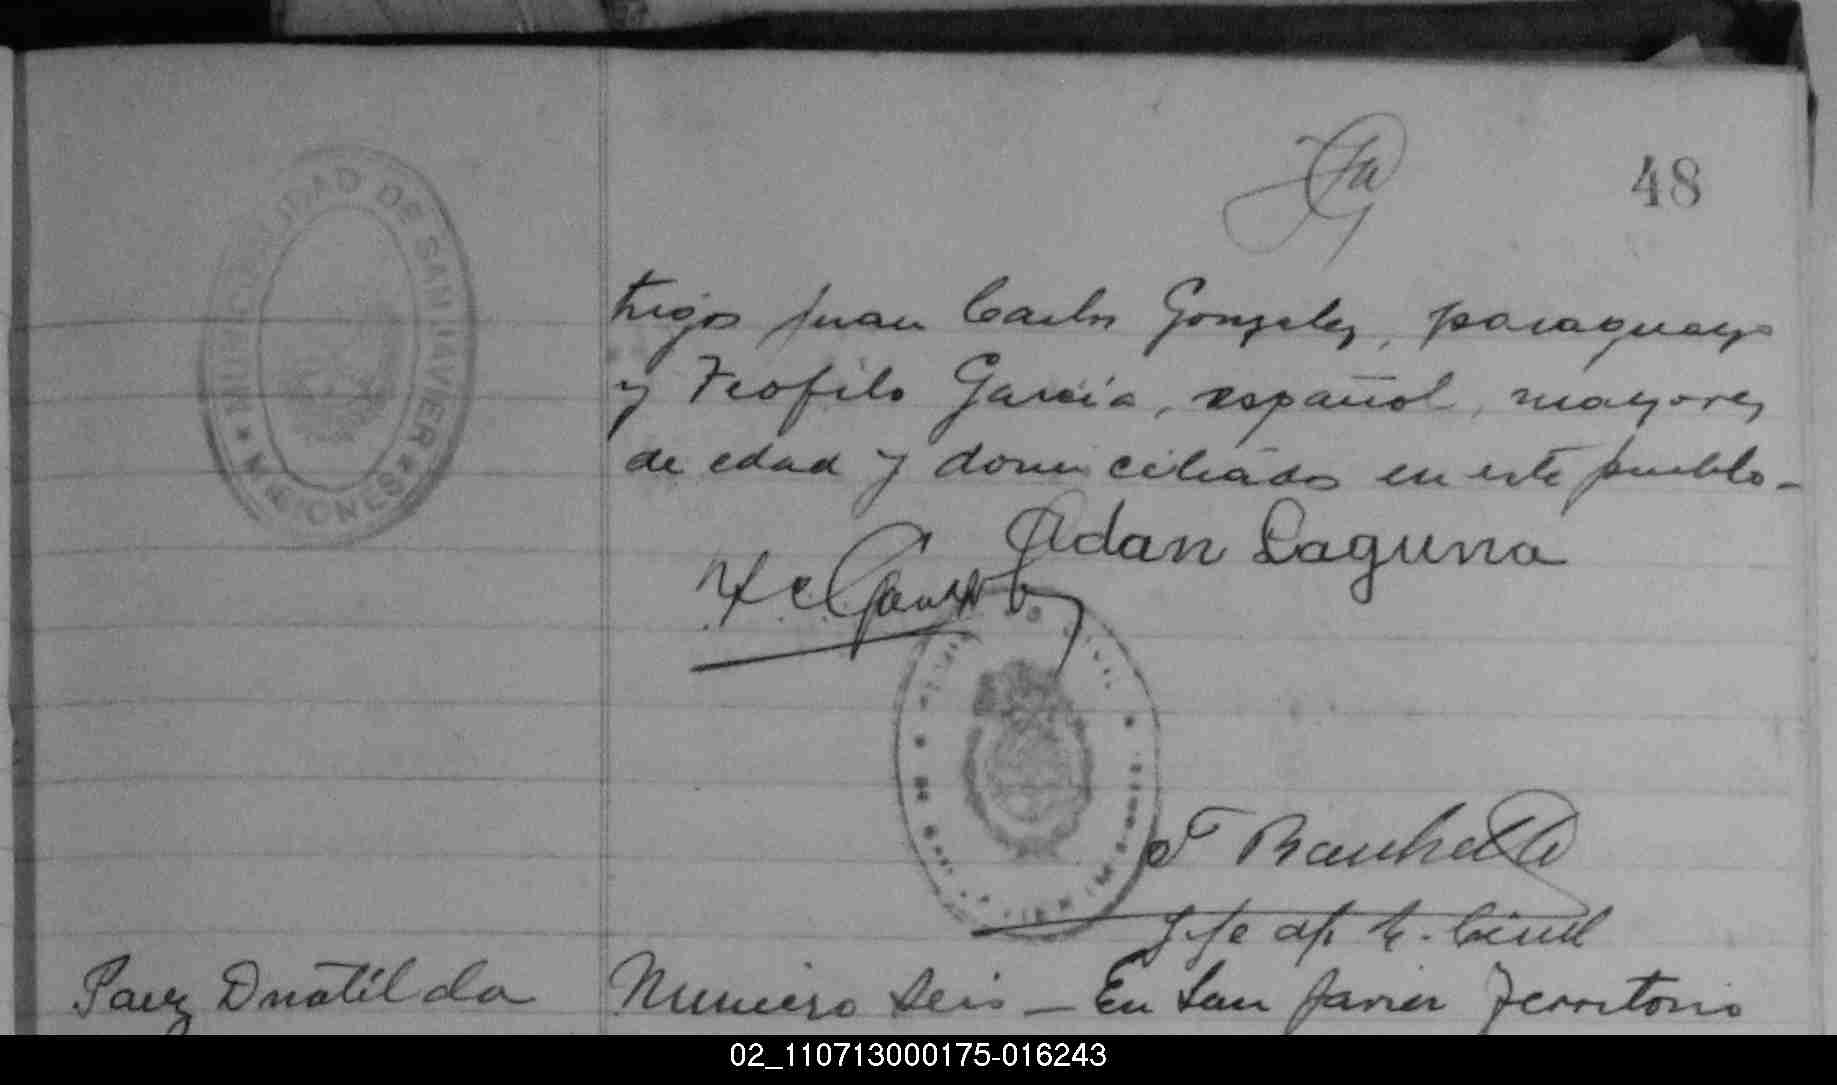 48
MUNICIPALIDAD DE SAN JAVIER
★ MISIONES ★
tigos Juan Carlos Gonzalez, paraguayo
y Teofilo García, español, mayores
de edad y domiciliados en este pueblo_
Adan Laguna
Jefe del R. Civil
Paez Domatilda
Numero Seis _ En San Javier Territorio
02_110713000175-016243